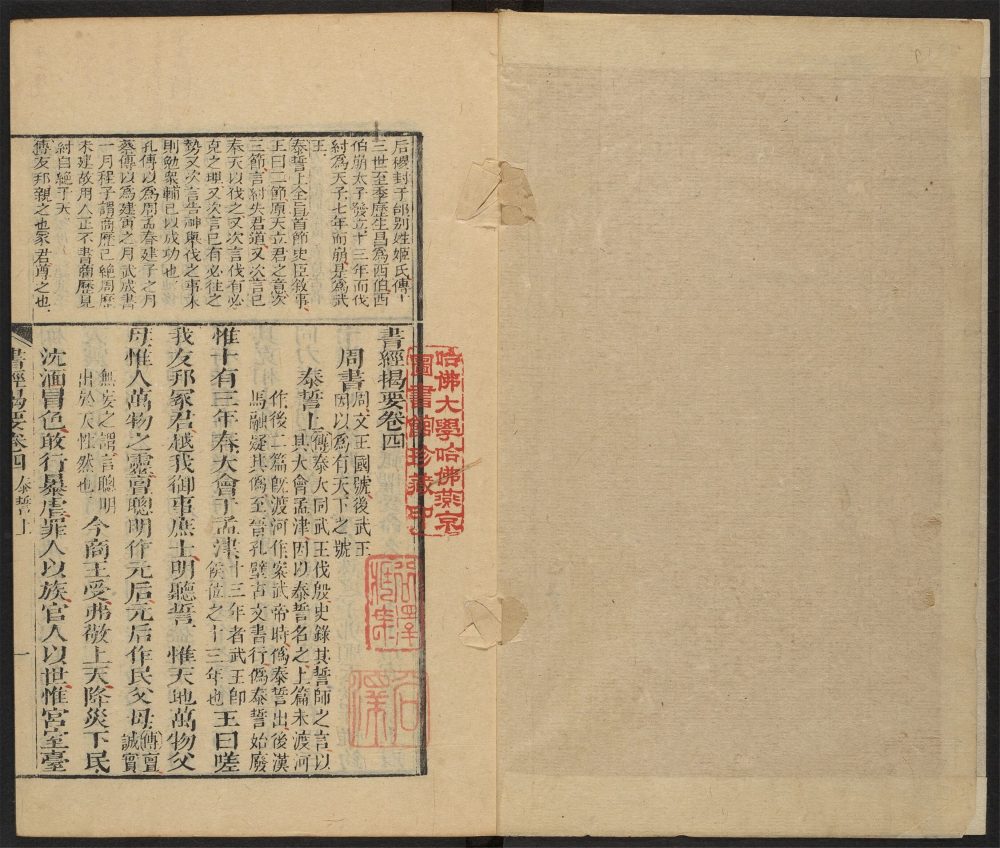 后稷封于邰别姓姬氏傳十
三世至季歷生昌爲西伯西
伯崩太子發立十三年而伐
紂爲天子七年而崩是爲武
王
泰誓上全旨首節史臣敘事
王曰二節原天立君之意次
三節言紂失君道又次言已
奉天以伐之又次言伐有必
克之理又次言已有必往之
勢又次言告神與伐之事末
則勉衆輔已以成功也
孔傳以爲周孟春建子之月
蔡傳以爲建寅之月武成書
一月程子謂商歷已絕周歷
未建故用人正不書商歷見
紂自絕于天
傳友邦親之也冢君尊之也
書經揭要卷四
周書周文王國號後武王
因以爲有天下之號
泰誓上傳泰大同武王伐殷史錄其誓師之言以
其大會孟津因以泰誓名之上篇未渡河
作後二篇旣渡河作案武帝時僞泰誓出後漢
馬融疑其僞至晉孔壁古文書行僞泰誓始廢
惟十有三年春大會于孟津十三年者武王卽
侯位之十三年也王曰嗟
我友邦冢君越我御事庶士明聽誓惟天地萬物父
母惟人萬物之靈亶聰明作元后元后作民父母傳亶
誠實
無妄之謂言聰明
出於天性然也今商王受弗敬上天降災下民
沈湎冒色敢行暴虐罪人以族官人以世惟宮室臺
書經揭要卷四 泰誓上 一
哈佛大學哈佛燕京
圖書館珍藏印